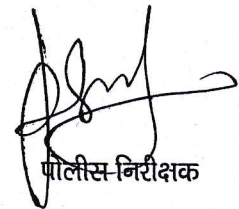 पोलीस निरीक्षक